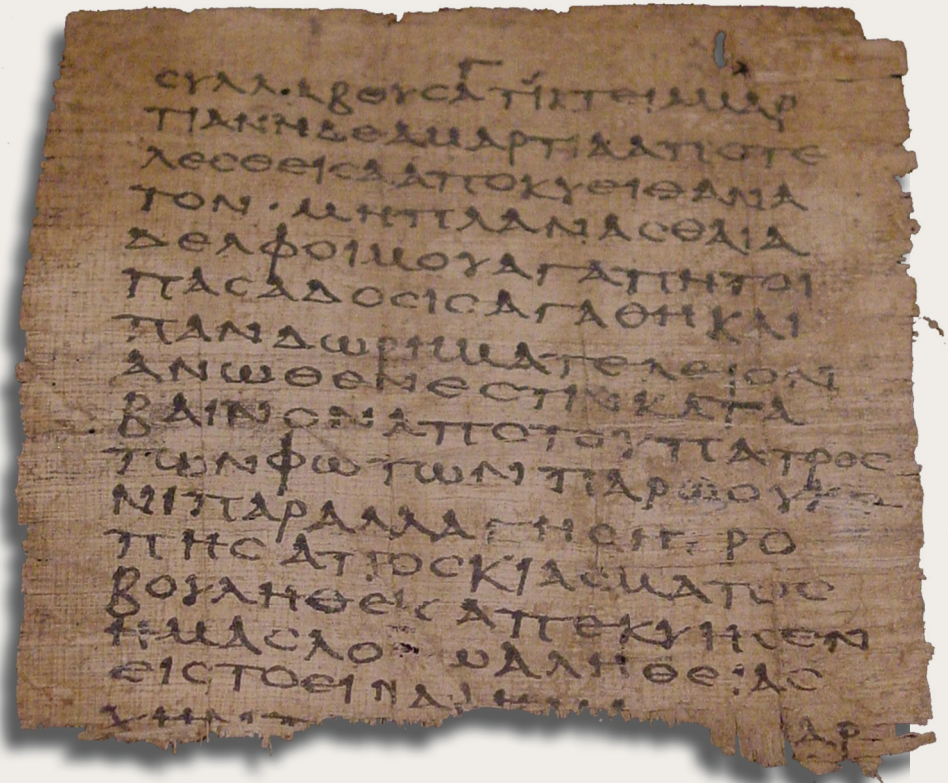 CΥΛΛΑΒΟΥCΑΤΙΚΤΕΙΑΜΑΡ
ΤΙΑΝΗΔΕΑΜΑΡΤΙΑΑΠΟΤΕ
ΛΕCΘΕΙCΑΑΠΟΚΥΕΙΘΑΝΑ
ΤΟΝ · ΜΗΠΛΑΝΑCΘΑΙΑ
ΔΕΛΦΟΙΜΟΥΑΓΑΠΗΤΟΙ
ΠΑCΑΔΟCΙCΑΓΑΘΗΚΑΙ
ΠΑΝΔΩΡΗΜΑΤΕΛΕΙΟΝ
ΑΝΩΘΕΝΕCΤΙΝΚΑΤΑ
ΒΑΙΝΟΝΑΠΟΤΟΥΠΑΤΡΟC
ΤΩΝΦΩΤΩΝΠΑΡΩΟΥΚΕ
ΝΙΠΑΡΑΛΛΑΓΗCΗΤΡΟ
ΠΗCΑΠΟCΚΙΑCΜΑΤΟC
ΒΟΥΛΗΘΕΙCΑΠΕΚΥΗCΕΝ
ΗΜΑCΛΟΓΩΑΛΗΘΕΙΑC
ΕΙCΤΟΕΙΝΑΙ